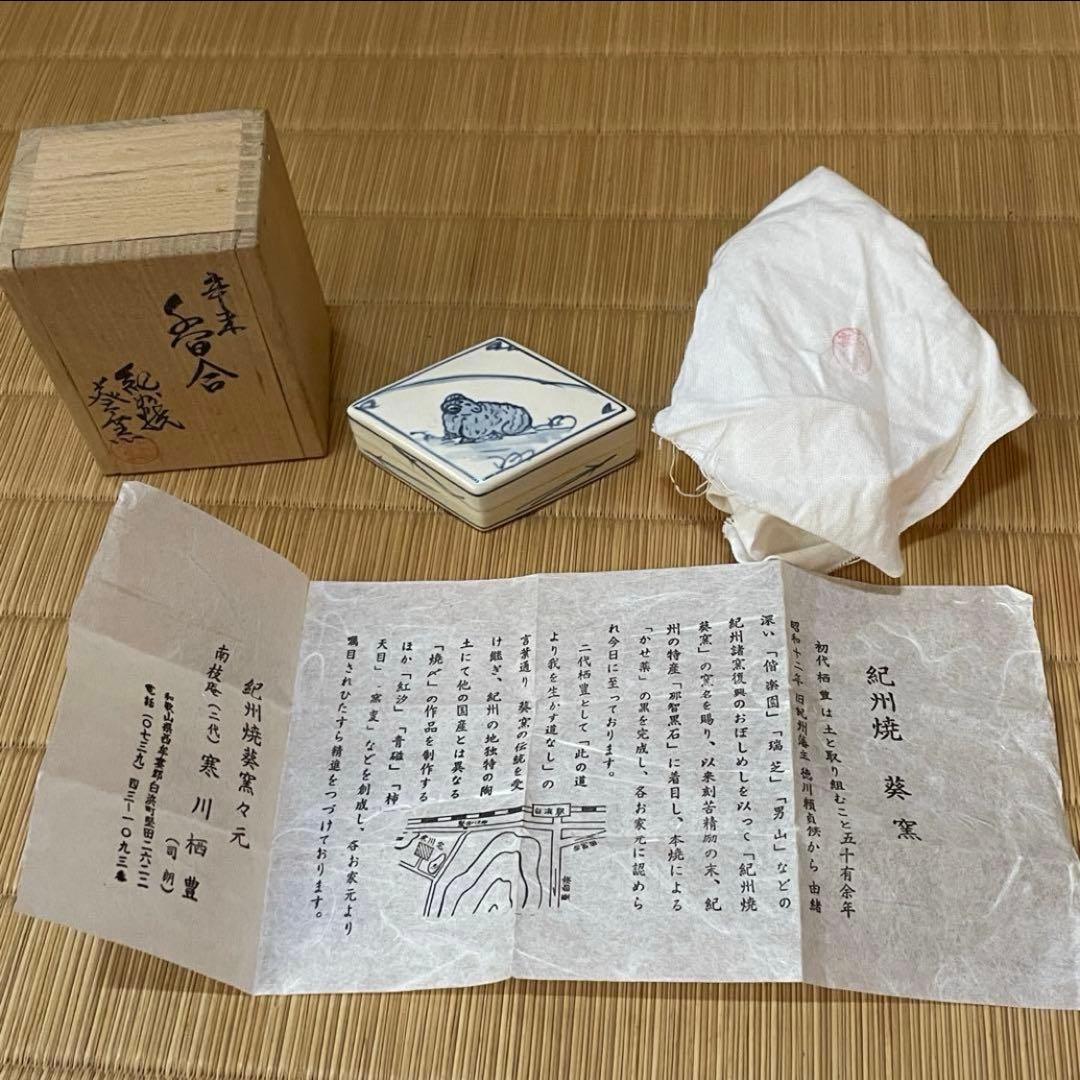 辛未
香合
紀州焼
葵窯
紀州焼 葵窯
初代 栖豊は土と取り組むこと五十有余年
昭和十二年 旧紀州藩主 徳川頼貞候から 由緒
深い「偕楽園」「瑞芝」「男山」などの
紀州諸窯復興のおぼしめしを以って「紀州焼
葵窯」の窯名を賜り、以来刻苦精励の末、紀
州の特産「那智黒石」に着目し、本焼による
「かせ薬」の黒を完成し、各お家元に認めら
れ今日に至っております。
二代栖豊として「此の道
より我を生かす道なし」の
言葉通り 葵窯の伝統を受
け継ぎ、紀州の地独特の陶
土にて他の国産とは異なる
「焼〆」の作品を制作する
ほか「紅汐」「青磁」「柿
天目」「窯変」などを創成し、各お家元より
嘱目されひたすら精進をつづけております。
白浜駅
寒川宅
紀州焼葵窯々元
南枝庵(二代)寒川栖豊
(司朗)
和歌山県西牟婁郡白浜町堅田二六二二
電話(〇七三九)四三―一〇九三番